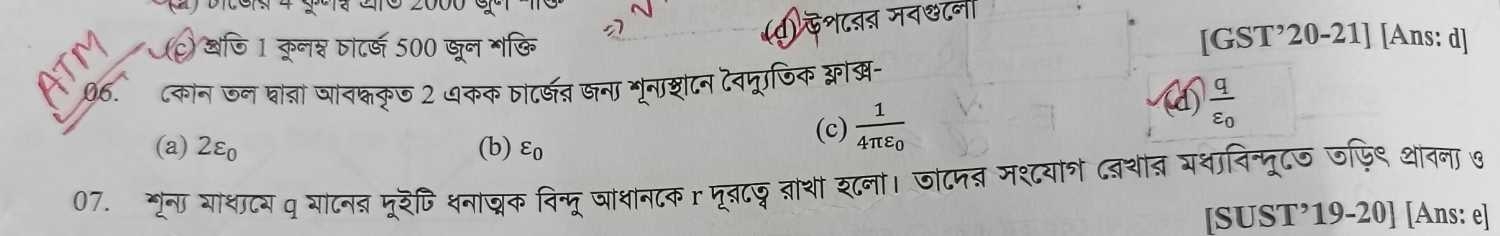 (c) প্রতি 1 কুলম্ব চার্জে 500 জুল শক্তি
(d) উপরের সবগুলো
[GST’20-21] [Ans: d]
ATM
06. কোন তল দ্বারা আবদ্ধকৃত 2 একক চার্জের জন্য শূন্যস্থানে বৈদ্যুতিক ফ্লাক্স-
(a) 2ε₀ (b) ε₀ (c) 1/4πε₀ (d) q/ε₀
07. শূন্য মাধ্যমে q মানের দুইটি ধনাত্মক বিন্দু আধানকে r দূরত্বে রাখা হলো। তাদের সংযোগ রেখার মধ্যবিন্দুতে তড়িৎ প্রাবল্য ও
[SUST’19-20] [Ans: e]